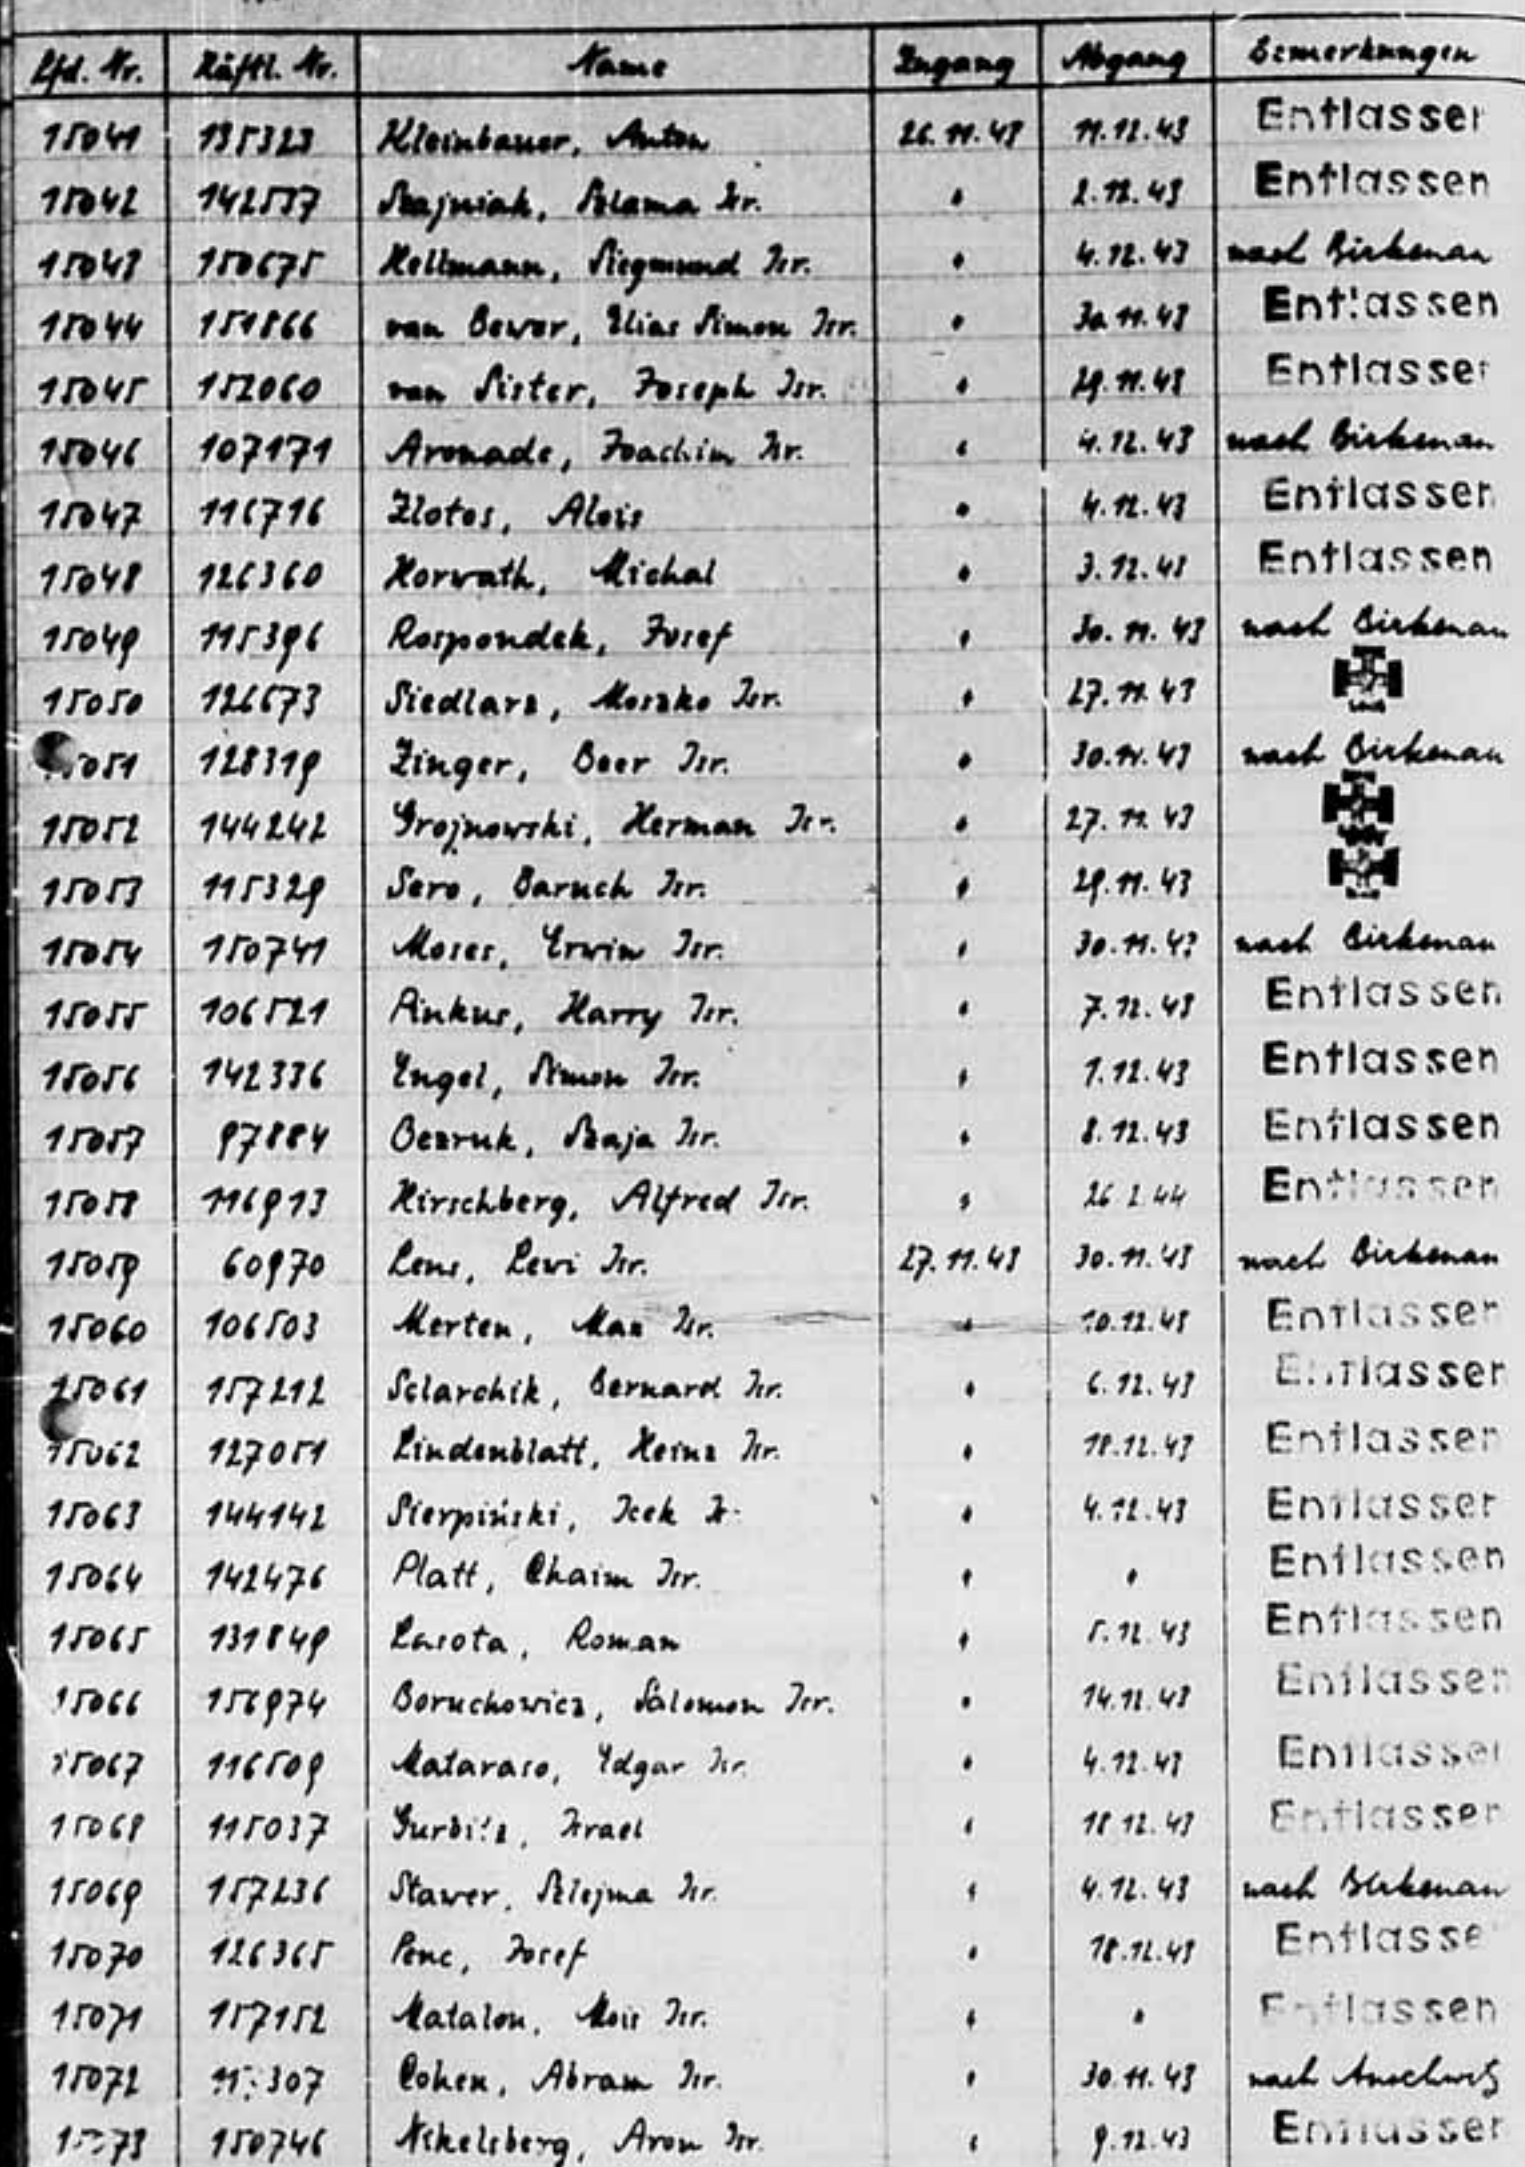 Lfd. Nr. Häftl. Nr. Name Zugang Abgang Bemerkungen
15041 135323 Kleinbauer, Anton 26.11.43 11.12.43 Entlassen
15042 142557 Szajniak, Szlama Isr. " 2.12.43 Entlassen
15043 150675 Hellmann, Siegmund Isr. " 4.12.43 nach Birkenau
15044 151866 van Bever, Elias Simon Isr. " 30.11.43 Entlassen
15045 152060 van Sister, Joseph Isr. " 29.11.43 Entlassen
15046 107171 Aronade, Joachim Isr. " 4.12.43 nach Birkenau
15047 116716 Zlotos, Alois " 4.12.43 Entlassen
15048 126360 Horwath, Michal " 3.12.43 Entlassen
15049 115396 Rospondek, Josef " 30.11.43 nach Birkenau
15050 126673 Siedlarz, Moszko Isr. " 27.11.43
15051 128319 Zinger, Beer Isr. " 30.11.43 nach Birkenau
15052 144242 Grojnowski, Herman Isr. " 27.11.43
15053 115329 Sero, Baruch Isr. " 29.11.43
15054 150741 Moses, Erwin Isr. " 30.11.43 nach Birkenau
15055 106521 Pinkus, Harry Isr. " 7.12.43 Entlassen
15056 142336 Engel, Simon Isr. " 1.12.43 Entlassen
15057 97884 Bezruk, Szaja Isr. " 8.12.43 Entlassen
15058 116913 Hirschberg, Alfred Isr. " 26 2 44 Entlassen
15059 60970 Lens, Levi Isr. 27.11.43 30.11.43 nach Birkenau
15060 106503 Merten, Max Isr. " 10.12.43 Entlassen
15061 157212 Sclarchik, Bernard Isr. " 6.12.43 Entlassen
15062 127051 Lindenblatt, Heinz Isr. " 18.12.43 Entlassen
15063 144142 Sierpiński, Icek Isr. " 4.12.43 Entlassen
15064 142476 Platt, Chaim Isr. " " Entlassen
15065 131849 Lasota, Roman " 5.12.43 Entlassen
15066 156974 Boruchowicz, Salomon Isr. " 14.12.43 Entlassen
15067 116509 Mataraso, Edgar Isr. " 4.12.43 Entlassen
15068 115037 Israel " 18 12.43 Entlassen
15069 157236 Stawer, Szlejma Isr. " 4.12.43 nach Birkenau
15070 126365 Penc, Josef " 18.12.43 Entlassen
15071 157152 Matalon, Mois Isr. " " Entlassen
15072 Cohen, Abram Isr. " 30.11.43 nach Auschwitz
15073 150746 Nikelsberg, Aron Isr. " 9.12.43 Entlassen